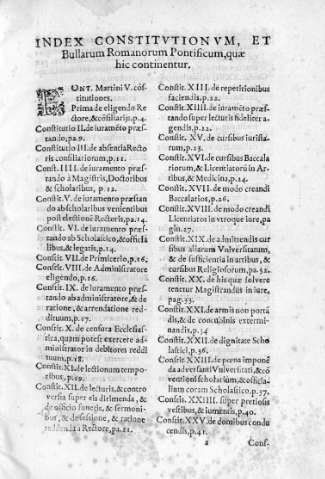 INDEX CONSTITVTIONVM, ET
Bullarum Romanorum Pontificum, quæ
hic continentur.
PONT. Martini V. cōstitutiones.
Prima de eligendo Rectore, & cōsiliarijs, p.4.
Constitutio II. de iuramēto præstando, pa.9.
Constitutio III. de absentia Rectoris consiliariorum, p.11.
Const. IIII. de iuramento præstando à Magistris, Doctoribus
& scholaribus, p. 12.
Constit. V. de iuramento præstando
ab scholaribus venientibus
post electionē Rectoris, pa.14.
Constit. VI. de iuramento præstando
ab Scholastico, & officialibus,
& legatis, pa.14.
Constit. VII. de Primicerio, p.16.
Constit. VIII. de Administratore
eligendo, p.16.
Constit. IX. de iuramento præstando
ab administratore, & de
ratione, & arrendatione reddituum,
p.17.
Constit. X. de censura Ecclesiastica,
quam potest exercere administrator
in debitores reddituum,
p.18.
Constit. XI. de lectionum temporibus,
p.19.
Constit. XII. de lecturis, & controversia
super eis dirimenda, &
de officio Iunetis, & sermonibus,
& desessione, & ratione
reddenda à Rectore, pa.21.
Constit. XIII. de repetitionibus
faciendis, p.22.
Constit. XIIII. de iuramēto præstando
super lecturis fideliter agendis,
p.22.
Constit. XV. de cursibus iuristarum,
p.23.
Constit. XVI. de cursibus Baccalariorum,
& Licentiatorū in Artibus,
& Medicina, p.24.
Constit. XVII. de modo creandi
Baccalarios, p.26.
Constit. XVIII. de modo creandi
Licentiatos in vtroque iure, pagin.27.
Constit. XIX. de admittendis cursibus
aliarum Vniuersitatum,
& de sufficientia in artibus, &
cursibus Religiosorum, pa.32.
Constit. XX. de his quæ solvere
tenetur Magistrandis in iure,
pag.33.
Constit. XXI. de armis non portādis,
& de concubinis exterminandis,
p.34
Constit. XXII. de dignitate Scholastici,
p.36.
Constit. XXIII. de pœna imponēda
adversanti Vniuersitati, & cōventione
scholarium, & officialium
coram Scholastico. p.37.
Constit. XXIIII. super pretiosis
vestibus, & iumentis, p.40.
Constit. XXV. de domibus conducendis,
p.41.
Cons-